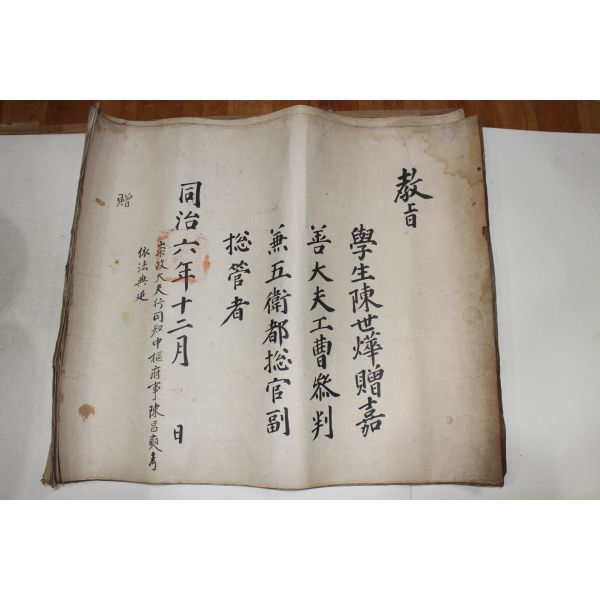 教旨
學生陳世燁贈嘉
善大夫工曹叅判
兼五衛都揔官副
揔管者
同治六年十二月 日
崇政大夫行同知中樞府事陳昌奭考
依法典追
贈